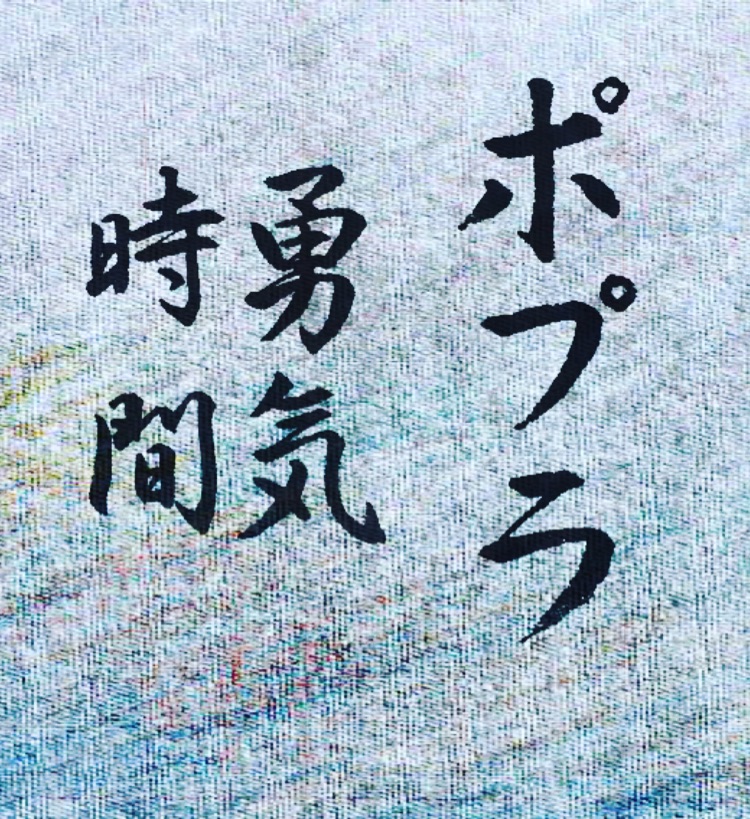 ポプラ
勇気
時間